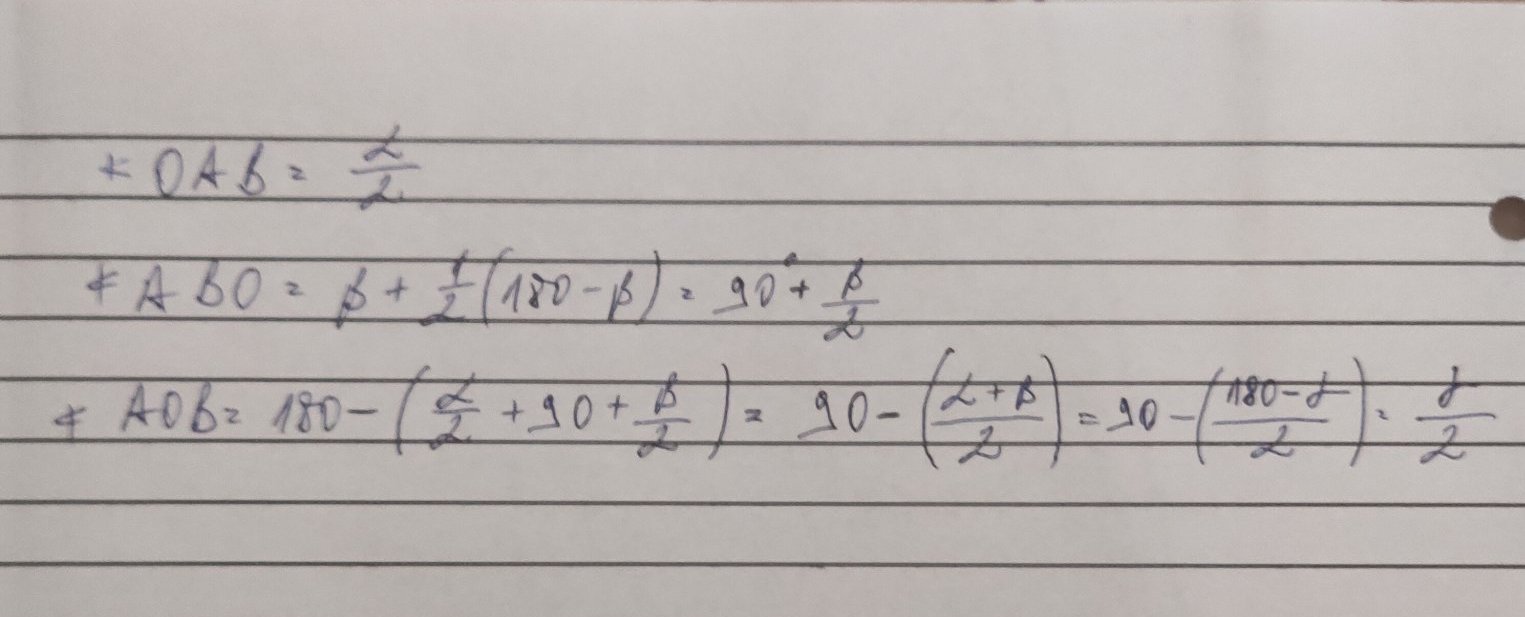 ∢ OAB = α/2
∢ ABO = β + 1/2 (180 - β) = 90° + β/2
∢ AOB = 180 - (α/2 + 90 + β/2) = 90 - ((α + β)/2) = 90 - ((180 - γ)/2) = γ/2